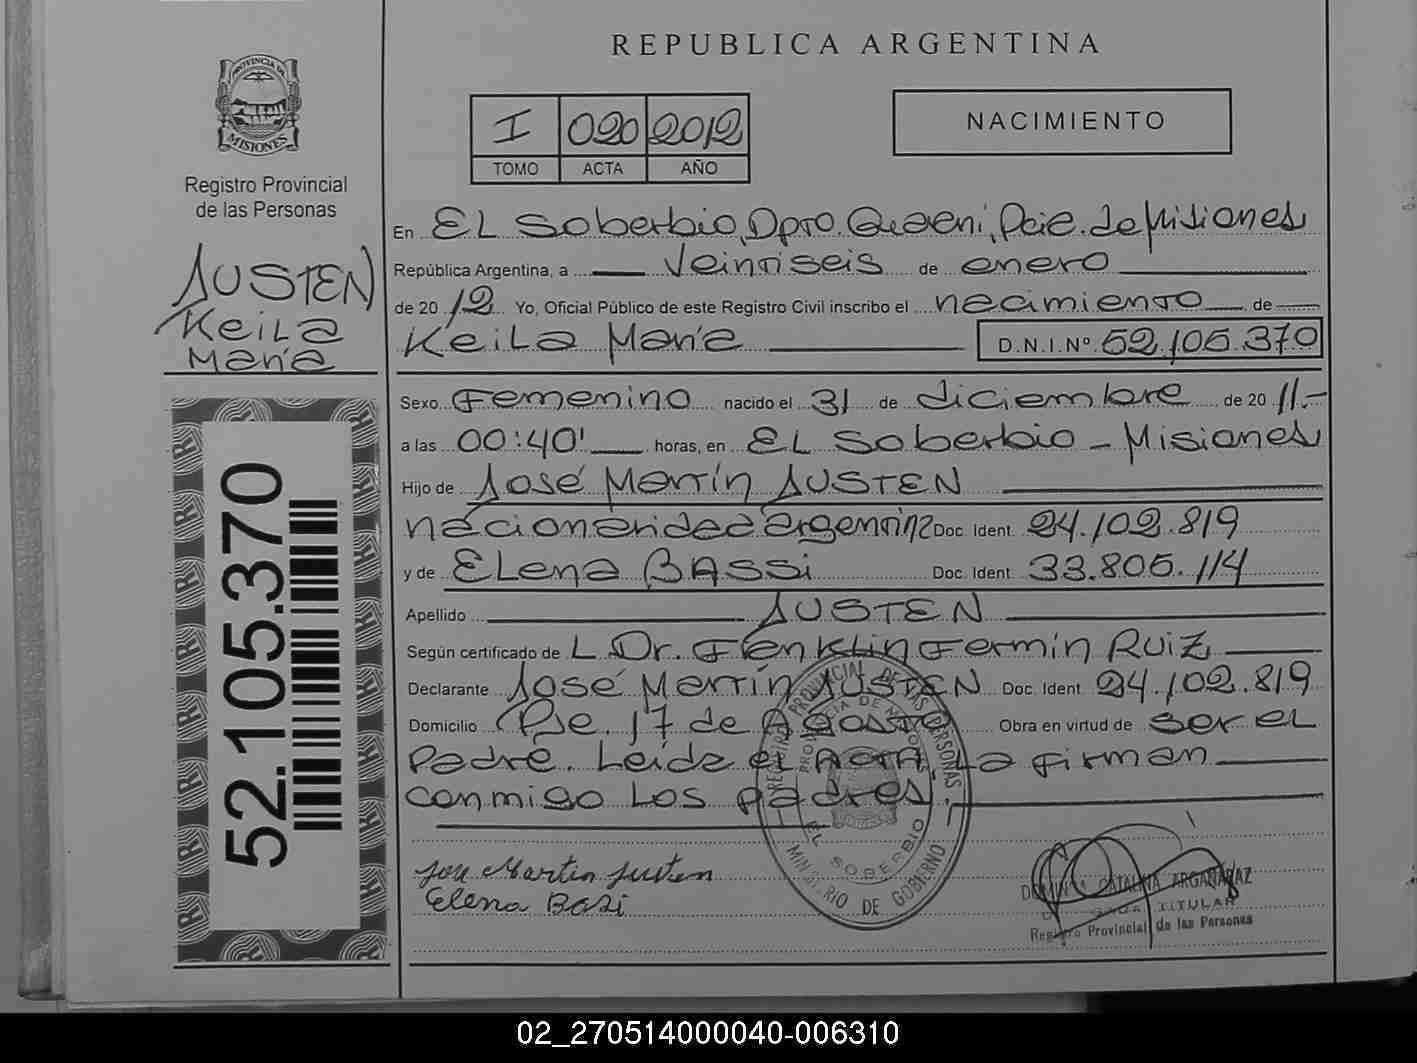 PROVINCIA DE
MISIONES
Registro Provincial
de las Personas
JUSTEN
Keila
María
52.105.370
REPUBLICA ARGENTINA
I 020 2012
TOMO ACTA AÑO
NACIMIENTO
En EL Soberbio, Dpto. Guaraní, Pcia. de Misiones
República Argentina, a veintiseis de enero
de 2012 Yo, Oficial Público de este Registro Civil inscribo el nacimiento de
Keila María D.N.I.Nº 52.105.370
Sexo Femenino nacido el 31 de diciembre de 2011.-
a las 00:40' horas, en EL Soberbio - Misiones
Hijo de José Martín JUSTEN
nacionalidad argentina Doc. Ident. 24.102.819
y de ELena BASSi Doc. Ident. 33.805.114
Apellido JUSTEN
Según certificado de L Dr. Franklin Fermín Ruiz
Declarante José Martín JUSTEN Doc. Ident 24.102.819
Domicilio Pje. 17 de Agosto Obra en virtud de ser el
Padre. Leída el ACTA, La firman
conmigo Los padres.
REGISTRO PROVINCIAL DE LAS PERSONAS
EL SOBERBIO
MINISTERIO DE GOBIERNO
Jose Martin Justen
Elena Basi
CATALINA ARGAÑARAZ
TITULAR
Registro Provincial de las Personas
02_270514000040-006310